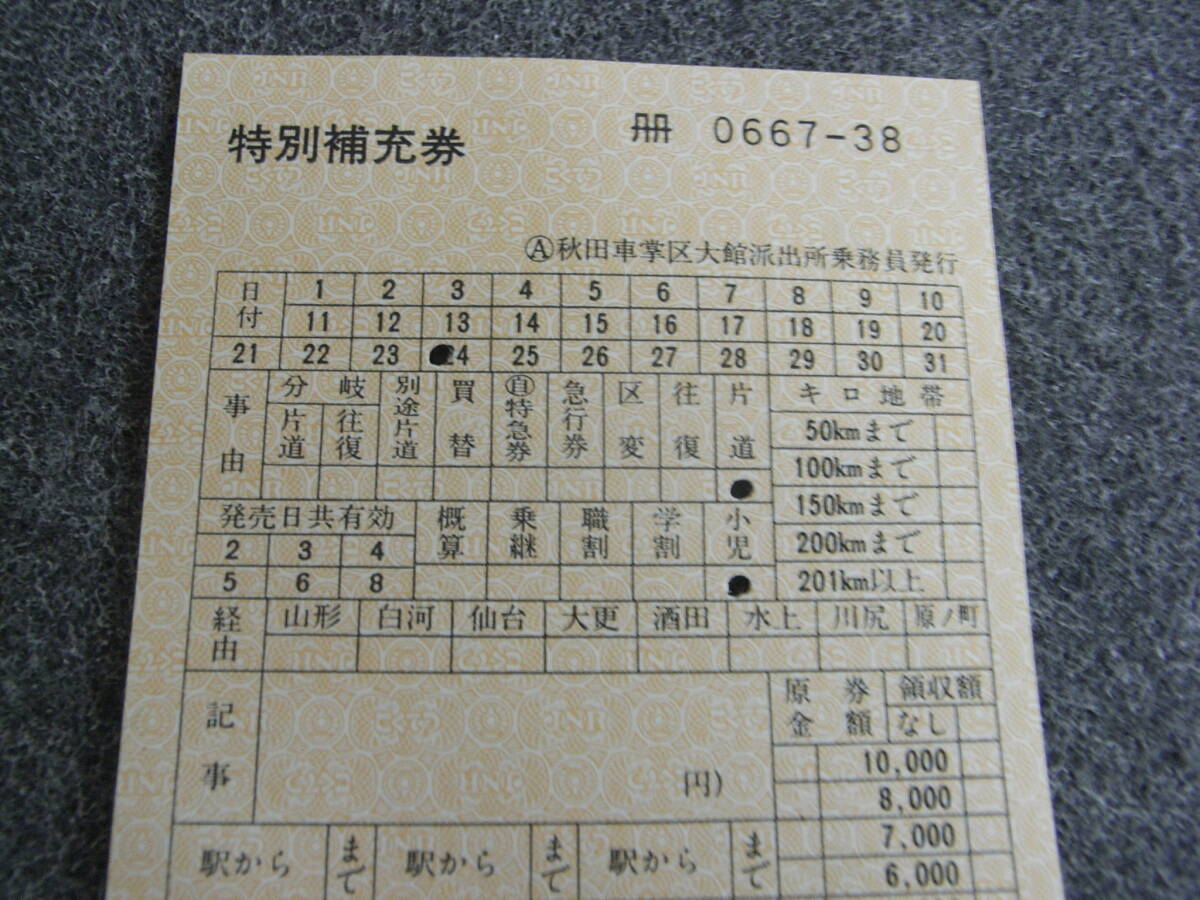 特別補充券 冊 0667-38
Ⓐ秋田車掌区大館派出所乗務員発行
日付 1 2 3 4 5 6 7 8 9 10
11 12 13 14 15 16 17 18 19 20
21 22 23 24 25 26 27 28 29 30 31
事由 分岐 別途片道 買替 ㊐特急券 急行券 区変 往復 片道 キロ地帯
片道 往復 50kmまで
100kmまで
150kmまで
200kmまで
201km以上
発売日共有効 概算 乗継 職割 学割 小児
2 3 4
5 6 8
経由 山形 白河 仙台 大更 酒田 水上 川尻 原ノ町
記事 円) 原券金額 領収額
なし
10,000
8,000
7,000
6,000
駅から まで 駅から まで 駅から まで